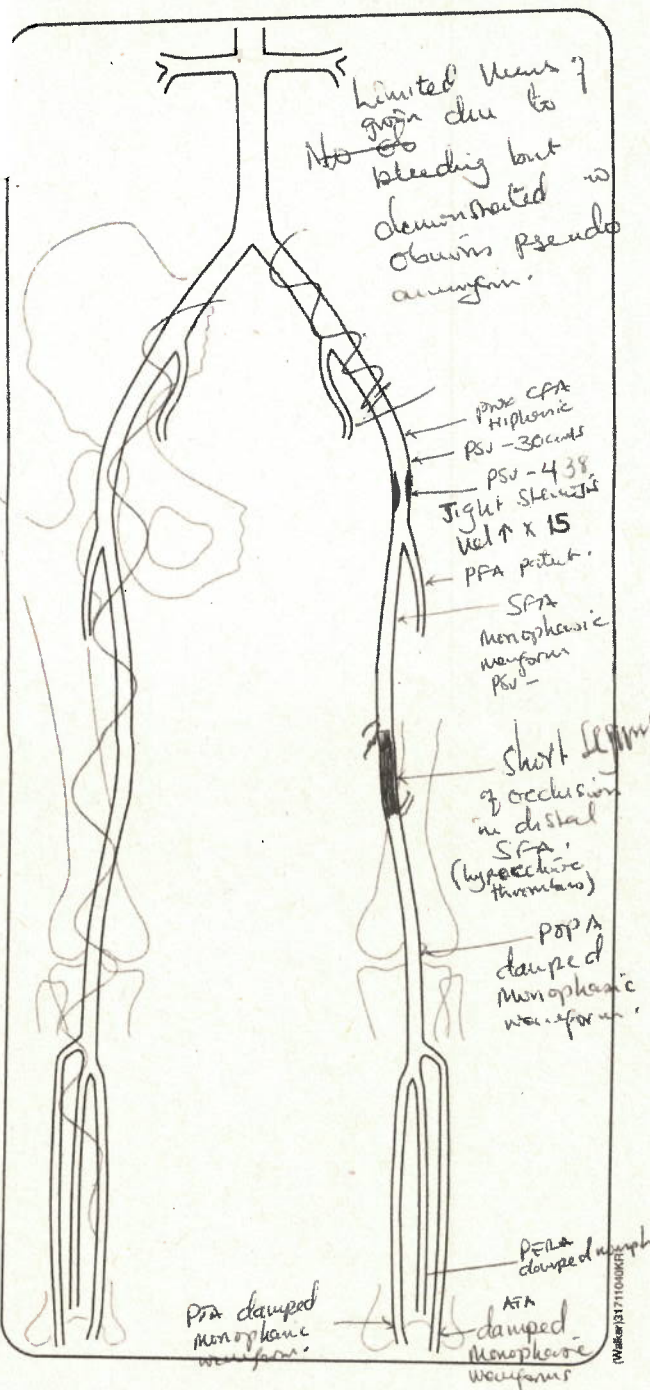 Limited views of
groin due to
No ob
bleeding but
demonstrated no
obvious pseudo
aneurysm.
prox CFA
triphasic
PSV - 30cm/s
PSV - 438
Tight stenosis
Vel ↑ x 15
PFA patent.
SFA
monophasic
waveform
PSV -
Short segment
of occlusion
in distal
SFA.
(hypoechoic
thrombus)
POP A
damped
monophasic
waveform.
PERA
damped monoph
PTA damped
monophasic
waveform.
ATA
damped
monophasic
waveforms
(Walker)31711040KR